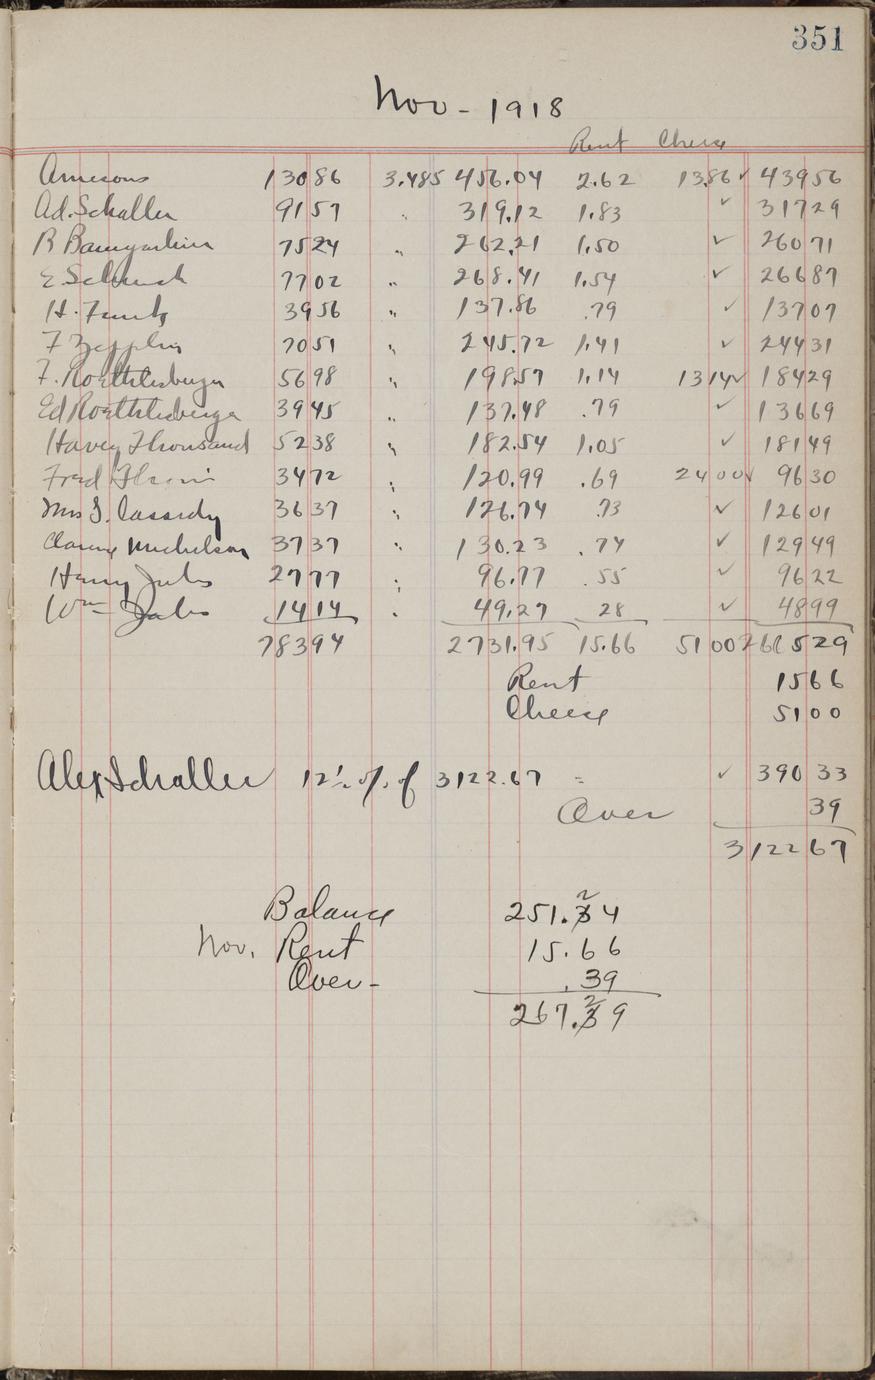 351
Nov - 1918
Rent Cheese
Arnesons 13086 3.485 456.04 2.62 13.86 ✓ 43956
Ad. Schaller 9157 " 319.12 1.83 ✓ 31729
B Baumgartner 7524 " 262.21 1.50 ✓ 26071
E 7702 " 268.41 1.54 ✓ 26687
H. 3956 " 137.86 .79 ✓ 13707
F 7051 " 245.72 1.41 ✓ 24431
F. Roethlisberger 5698 " 198.57 1.14 1314 ✓ 18429
Ed Roethlisberger 3945 " 137.48 .79 ✓ 13669
Havey Thousand 5238 " 182.54 1.05 ✓ 18149
Fred 3472 " 120.99 .69 2400 ✓ 9630
Mrs J. Cassidy 3637 " 126.74 .73 ✓ 12601
Michelson 3737 " 130.23 .74 ✓ 12949
Harry Jules 2777 " 96.77 .55 ✓ 9622
Wm Jules 1414 " 49.27 28 ✓ 4899
78394 2731.95 15.66 5100 266529
Rent 1566
Cheese 5100
Alex Schaller 12½ % of 3122.67 = ✓ 39033
Over 39
312267
Balance 251.24
Nov. Rent 15.66
Over - .39
267.29